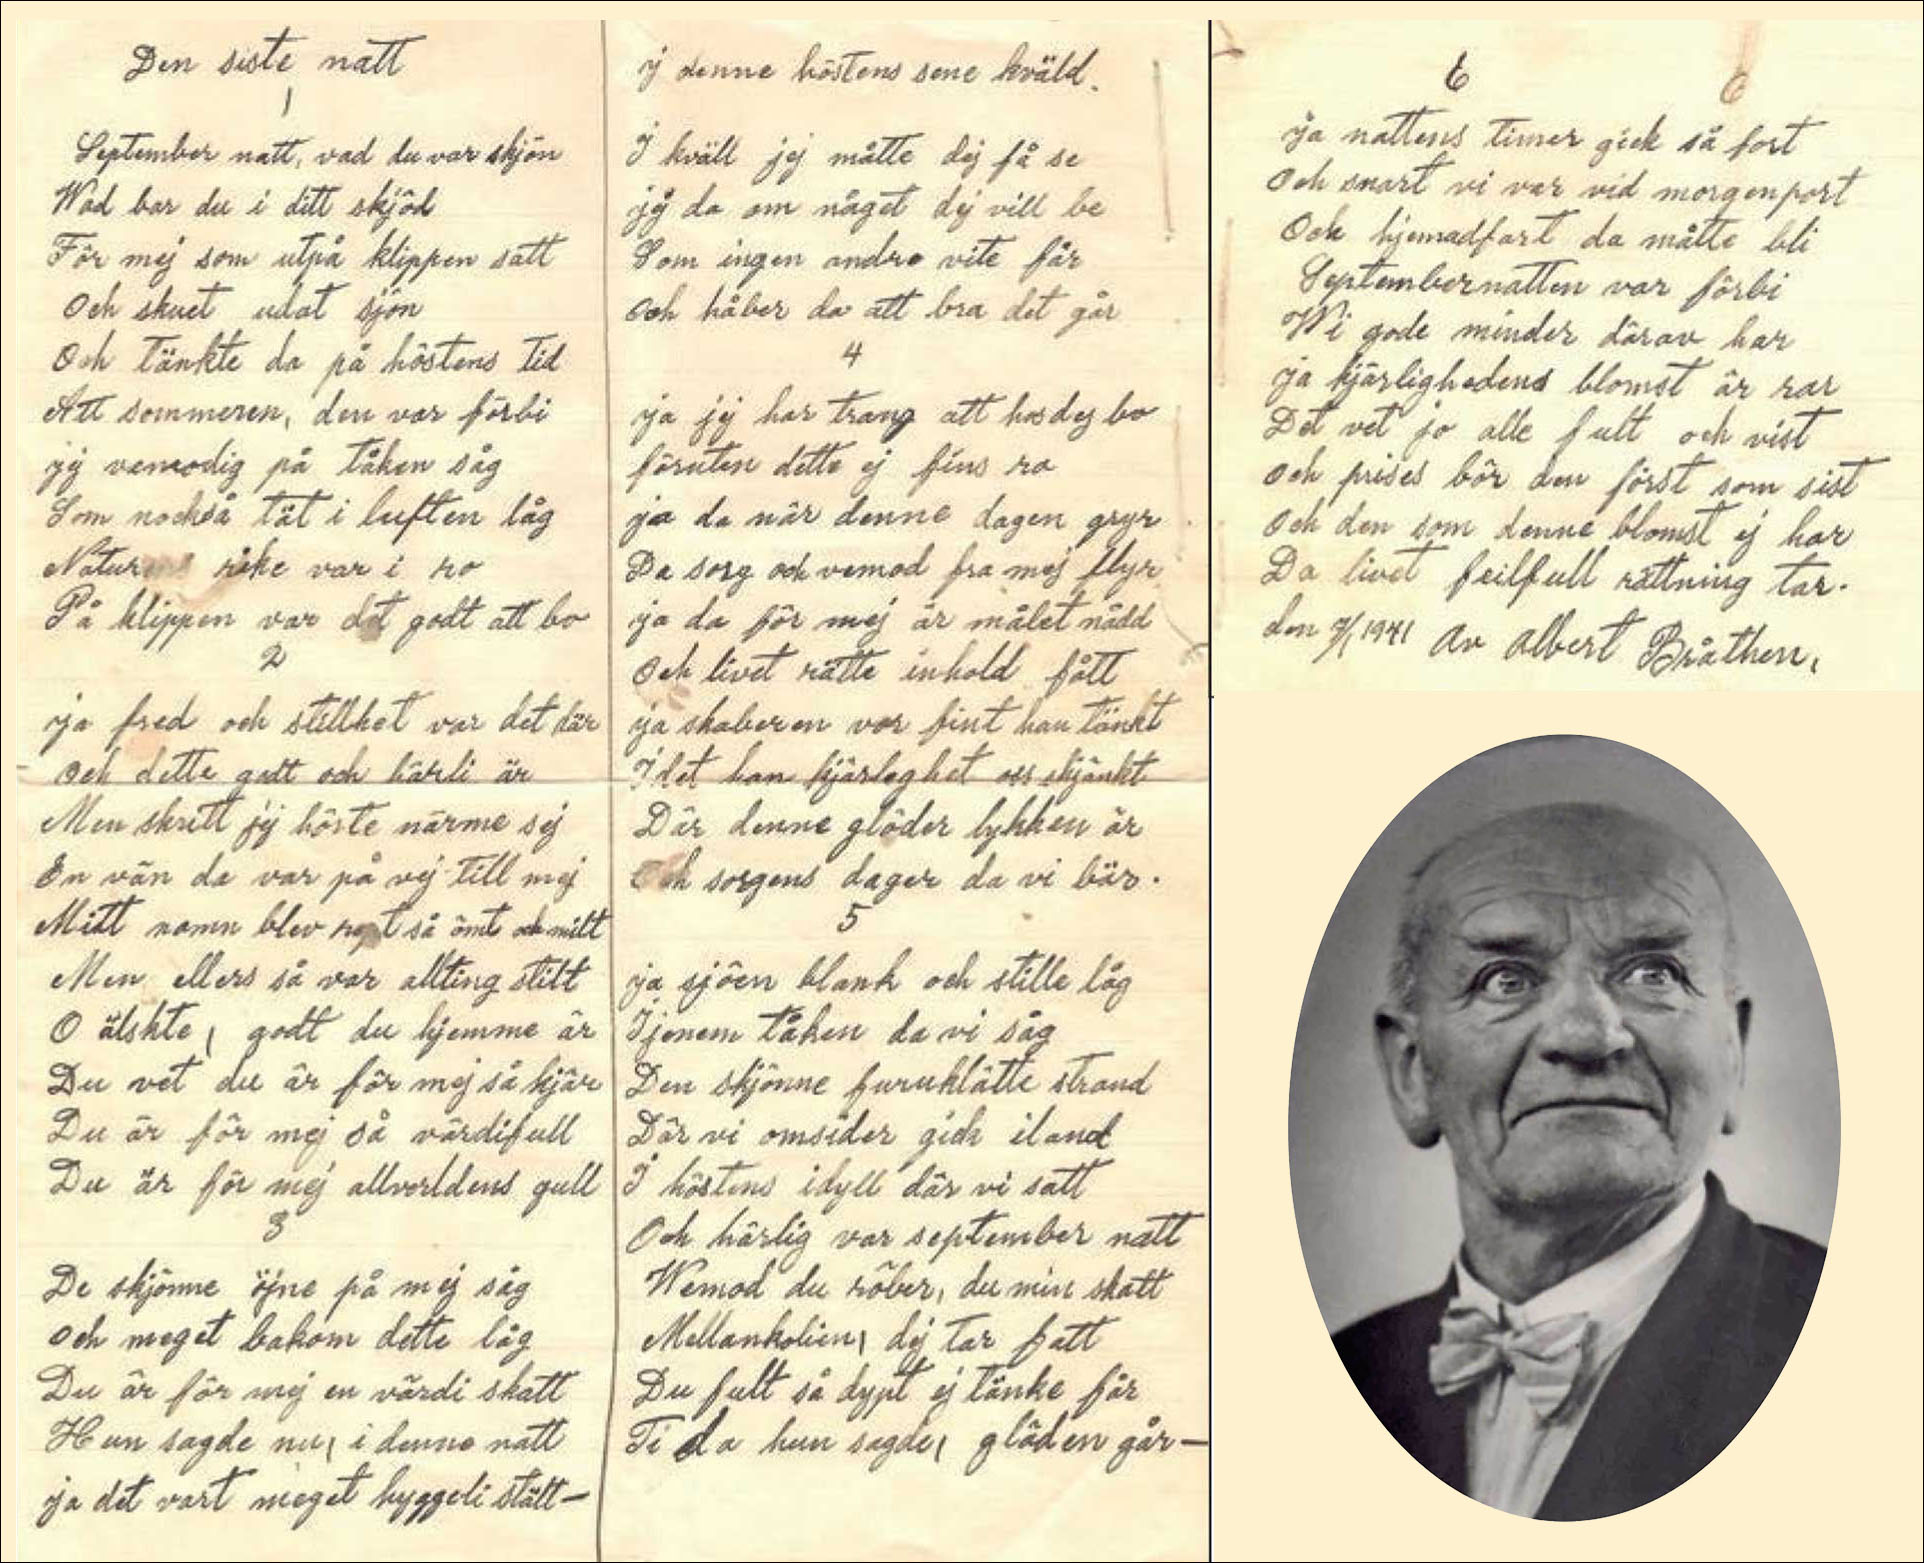 Den siste natt
1
September natt, vad du var skjön
Wad bar du i ditt skjöd
För mej som utpå klippen satt
Och skuet udat sjön
Och tänkte da på höstens tid
Att sommeren, den var förbi
jej vemodig på tåken såg
Som nockså tät i luften låg
rike var i ro
På klippen var det godt att bo
2
ja fred och stillhet var det där
och dette godt och härli är
Men skritt jej hörte närme sej
En vän da var på vej till mej
Mitt namn blev så ömt och milt
Men ellers så var allting stilt
O älskte, godt du hjemme är
Du vet du är för mej så kjär
Du är för mej så värdifull
Du är för mej allverldens gull
3
De skjönne öjne på mej såg
och meget bakom dette låg
Du är för mej en värdi skatt
Hun sagde nu, i denne natt
ja det vart meget hyggeli stält—
ij denne höstens sene kväld.
I kväll jej måtte dej få se
jej da om något dej vill be
Som ingen andre vite får
och håber da att bra det går
4
ja jej har trang att hos dej bo
föruten dette ej fins ro
ja da när denne dagen gryr
Da sorg och vemod fra mej flyr
ja da för mej är målet nådd
Och livet rätte inhold fått
ja skaberen vor fint han tänkt
I det han kjärleghet oss skjänkt
Där denne glöder lykken är
Och sorgens dager da vi bär.
5
ja sjöen blank och stille låg
Ijenem tåken da vi såg
Den skjönne furuklätte strand
Där vi omsider gick iland
I höstens idyll där vi satt
Och härlig var september natt
Wemod du röber, du min skatt
Mellankolien, dej tar fatt
Du fult så dypt ej tänke får
Ti da hun sagde, gläden går—
6
ja nattens timer gick så fort
Och snart vi var vid morgenport
Och hjemadfart da måtte bli
Septembernatten var förbi
Wi gode minder därav har
ja kjärlighedens blomst är rar
Det vet jo alle fult och vist
och prises bör den först som sist
och den som denne blomst ej har
Da livet feilfull rättning tar.
den 7/1 1941 Av Albert Bråthen,